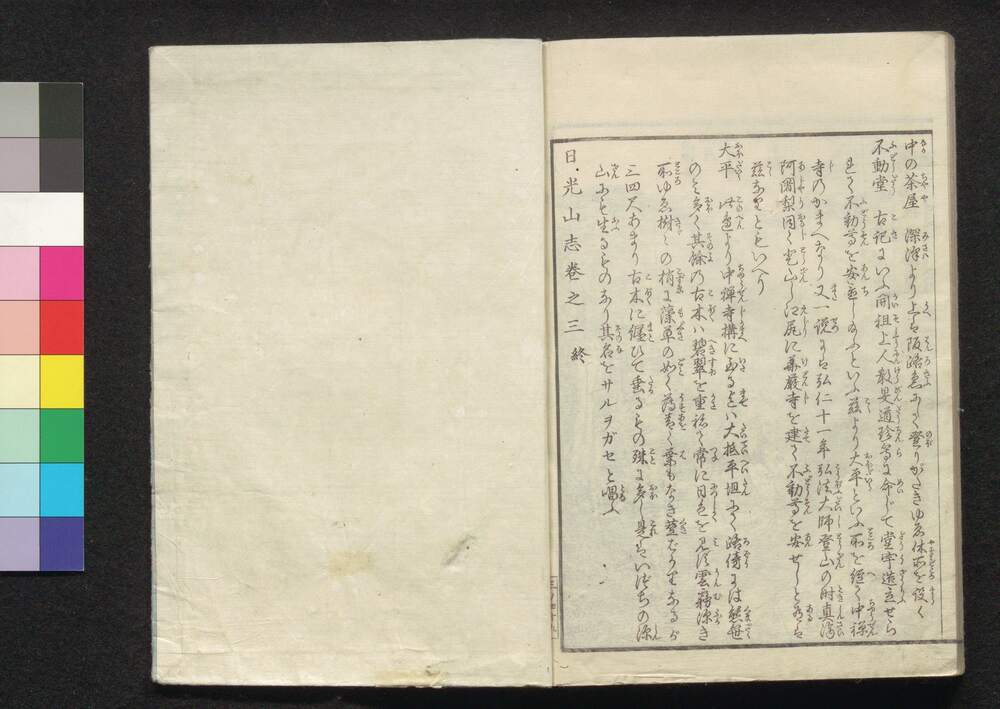 中の茶屋 深澤より上は阪路急にて登りがたきゆゑ休所を設く
不動堂 古記にいふ開祖上人教旻道珍等に命じて堂宇造立せら
れて不動尊を安置し給ふといふ茲より大平といふ所を經て中禪
寺のかまへなり又一説には弘仁十一年弘法大師登山の時真濟
阿闍梨同く登山し江尻に華嚴寺を建て不動尊を安せしとあるは
茲なりともいへり
大平 此邊より中禪寺構に至る迄は大抵平坦にて路傍には熊笹
のと多く其餘の古木ハ碧翠を重ねて常に日色を見ず雲霧深き
所ゆゑ樹々の梢に藻草の如く薄青く葉もなき蔓ばかりなるが
三四尺あまり古木に纒ひて垂るもの殊に多し是はいづちの深
山にも生るものなり其名をサルヲガセと唱ふ
日光山志卷之三 終